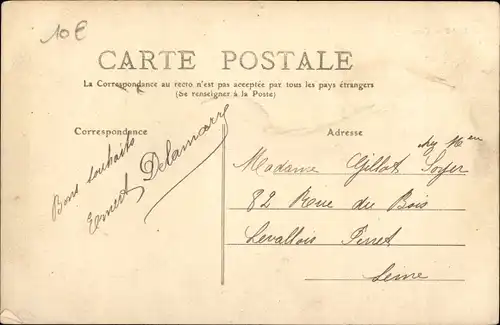 10€
CARTE POSTALE
La Correspondance au recto n'est pas acceptée par tous les pays étrangers
(Se renseigner à la Poste)
Correspondance
Adresse
Bons souhaits
Ernest Delamarre
chez Mme
Madame Gillot Soyer
82 Rue du Bois
Levallois Perret
Seine